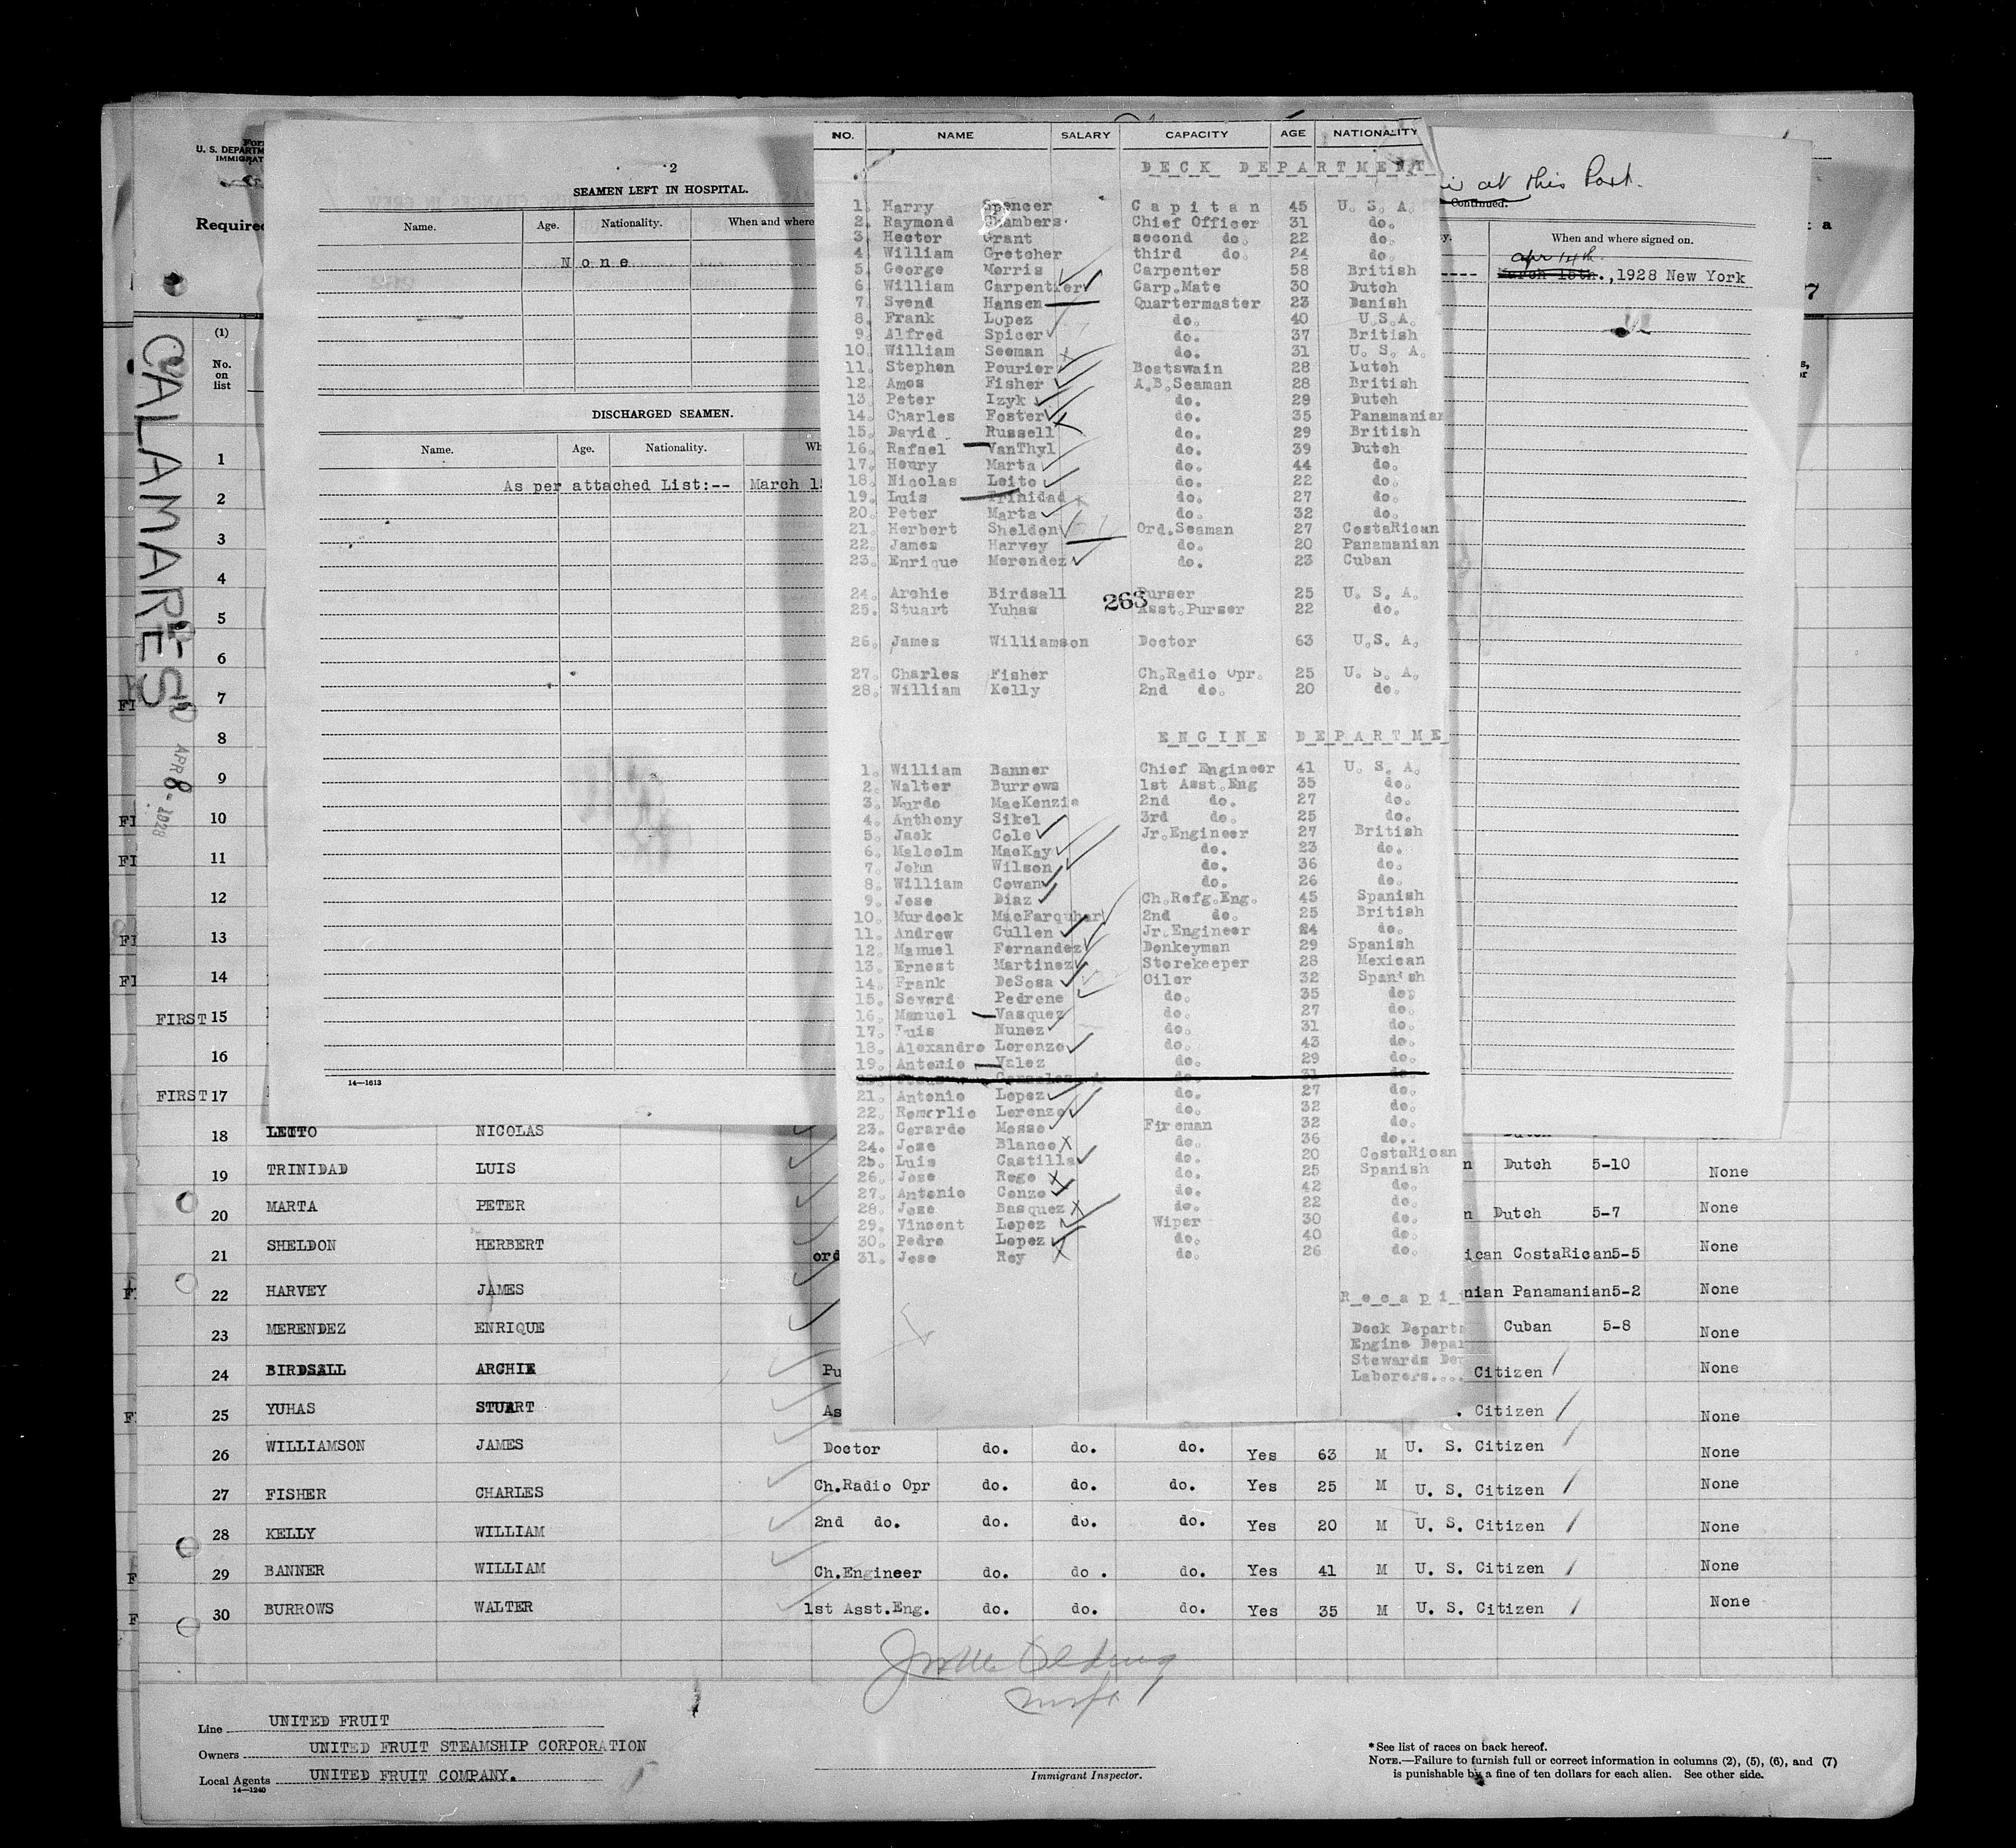 Form
U. S. DEPARTM
IMMIGRAT
Required
CALAMARES
APR 8 - 1928
(1)
No. on list
2
SEAMEN LEFT IN HOSPITAL.
Name. Age. Nationality. When and where
None
DISCHARGED SEAMEN.
Name. Age. Nationality. Wh
As per attached List:-- March 15
14—1613
at this Port.
Continued.
When and where signed on.
apr 14th.
March 15th., 1928 New York
NO. NAME SALARY CAPACITY AGE NATIONALITY
DECK DEPARTMENT
1. Harry Spencer Capitan 45 U. S. A.
2. Raymond Chambers Chief Officer 31 do.
3. Hector Grant second do. 22 do.
4. William Gretcher third do. 24 do.
5. George Morris Carpenter 58 British
6. William Carpentier Carp.Mate 30 Dutch
7. Svend Hansen Quartermaster 23 Danish
8. Frank Lopez do. 40 U.S.A.
9. Alfred Spicer do. 37 British
10. William Seeman do. 31 U. S. A.
11. Stephen Pourier Boatswain 28 Dutch
12. Amos Fisher A.B.Seaman 28 British
13. Peter Izyk do. 29 Dutch
14. Charles Foster do. 35 Panamanian
15. David Russell do. 29 British
16. Rafael VanThyl do. 39 Dutch
17. Henry Marta do. 44 do.
18. Nicolas Leito do. 22 do.
19. Luis Trinidad do. 27 do.
20. Peter Marta do. 32 do.
21. Herbert Sheldon Ord.Seaman 27 CostaRican
22. James Harvey do. 20 Panamanian
23. Enrique Merendez do. 23 Cuban
24. Archie Birdsall Purser 25 U. S. A.
263
25. Stuart Yuhas Asst.Purser 22 do.
26. James Williamson Doctor 63 U.S. A.
27. Charles Fisher Ch.Radio Opr. 25 U. S. A.
28. William Kelly 2nd do. 20 do.
ENGINE DEPARTME
1. William Banner Chief Engineer 41 U. S. A.
2. Walter Burrows 1st Asst.Eng 35 do.
3. Murdo MacKenzie 2nd do. 27 do.
4. Anthony Sikel 3rd do. 25 do.
5. Jack Cole Jr.Engineer 27 British
6. Malcolm MacKay do. 23 do.
7. John Wilson do. 36 do.
8. William Cowan do. 26 do.
9. Jose Diaz Ch.Refg.Eng. 45 Spanish
10. Murdock MacFarquhar 2nd do. 25 British
11. Andrew Cullen Jr.Engineer 24 do.
12. Manuel Fernandez Donkeyman 29 Spanish
13. Ernest Martinez Storekeeper 28 Mexican
14. Frank DeSosa Oiler 32 Spanish
15. Severd Pedrene do. 35 do.
16. Manuel Vasquez do. 27 do.
17. Luis Nunez do. 31 do.
18. Alexandro Lorenzo do. 43 do.
19. Antonio Valez do. 29 do.
Gonzalez do. 31 do.
21. Antonio Lopez do. 27 do.
22. Romerlio Lorenzo do. 32 do.
23. Gerardo Mosso Fireman 32 do.
24. Jose Blanco do. 36 do.
25. Luis Castilla do. 20 CostaRican
26. Jose Rego do. 25 Spanish
27. Antonio Conzo do. 42 do.
28. Jose Basquez do. 22 do.
29. Vincent Lopez Wiper 30 do.
30. Pedro Lopez do. 40 do.
31. Jose Rey do. 26 do.
Recapi
Deck Departm
Engine Depar
Stewards Dep
Laborers....
1
2
3
4
5
6
7
8
9
10
11
12
13
14
FIRST 15
16
FIRST 17
18 LEITO NICOLAS
19 TRINIDAD LUIS Dutch 5-10 None
20 MARTA PETER Dutch 5-7 None
21 SHELDON HERBERT ord ican CostaRican5-5 None
22 HARVEY JAMES nian Panamanian5-2 None
23 MERENDEZ ENRIQUE Cuban 5-8 None
24 BIRDSALL ARCHIE Pu Citizen None
25 YUHAS STUART As . Citizen None
26 WILLIAMSON JAMES Doctor do. do. do. Yes 63 M U. S. Citizen None
27 FISHER CHARLES Ch.Radio Opr do. do. do. Yes 25 M U. S. Citizen None
28 KELLY WILLIAM 2nd do. do. do. do. Yes 20 M U. S. Citizen None
29 BANNER WILLIAM Ch.Engineer do. do. do. Yes 41 M U. S. Citizen None
30 BURROWS WALTER 1st Asst.Eng. do. do. do. Yes 35 M U. S. Citizen None
Line UNITED FRUIT
Owners UNITED FRUIT STEAMSHIP CORPORATION
Local Agents UNITED FRUIT COMPANY.
14—1240
Immigrant Inspector.
*See list of races on back hereof.
NOTE.—Failure to furnish full or correct information in columns (2), (5), (6), and (7)
is punishable by a fine of ten dollars for each alien. See other side.